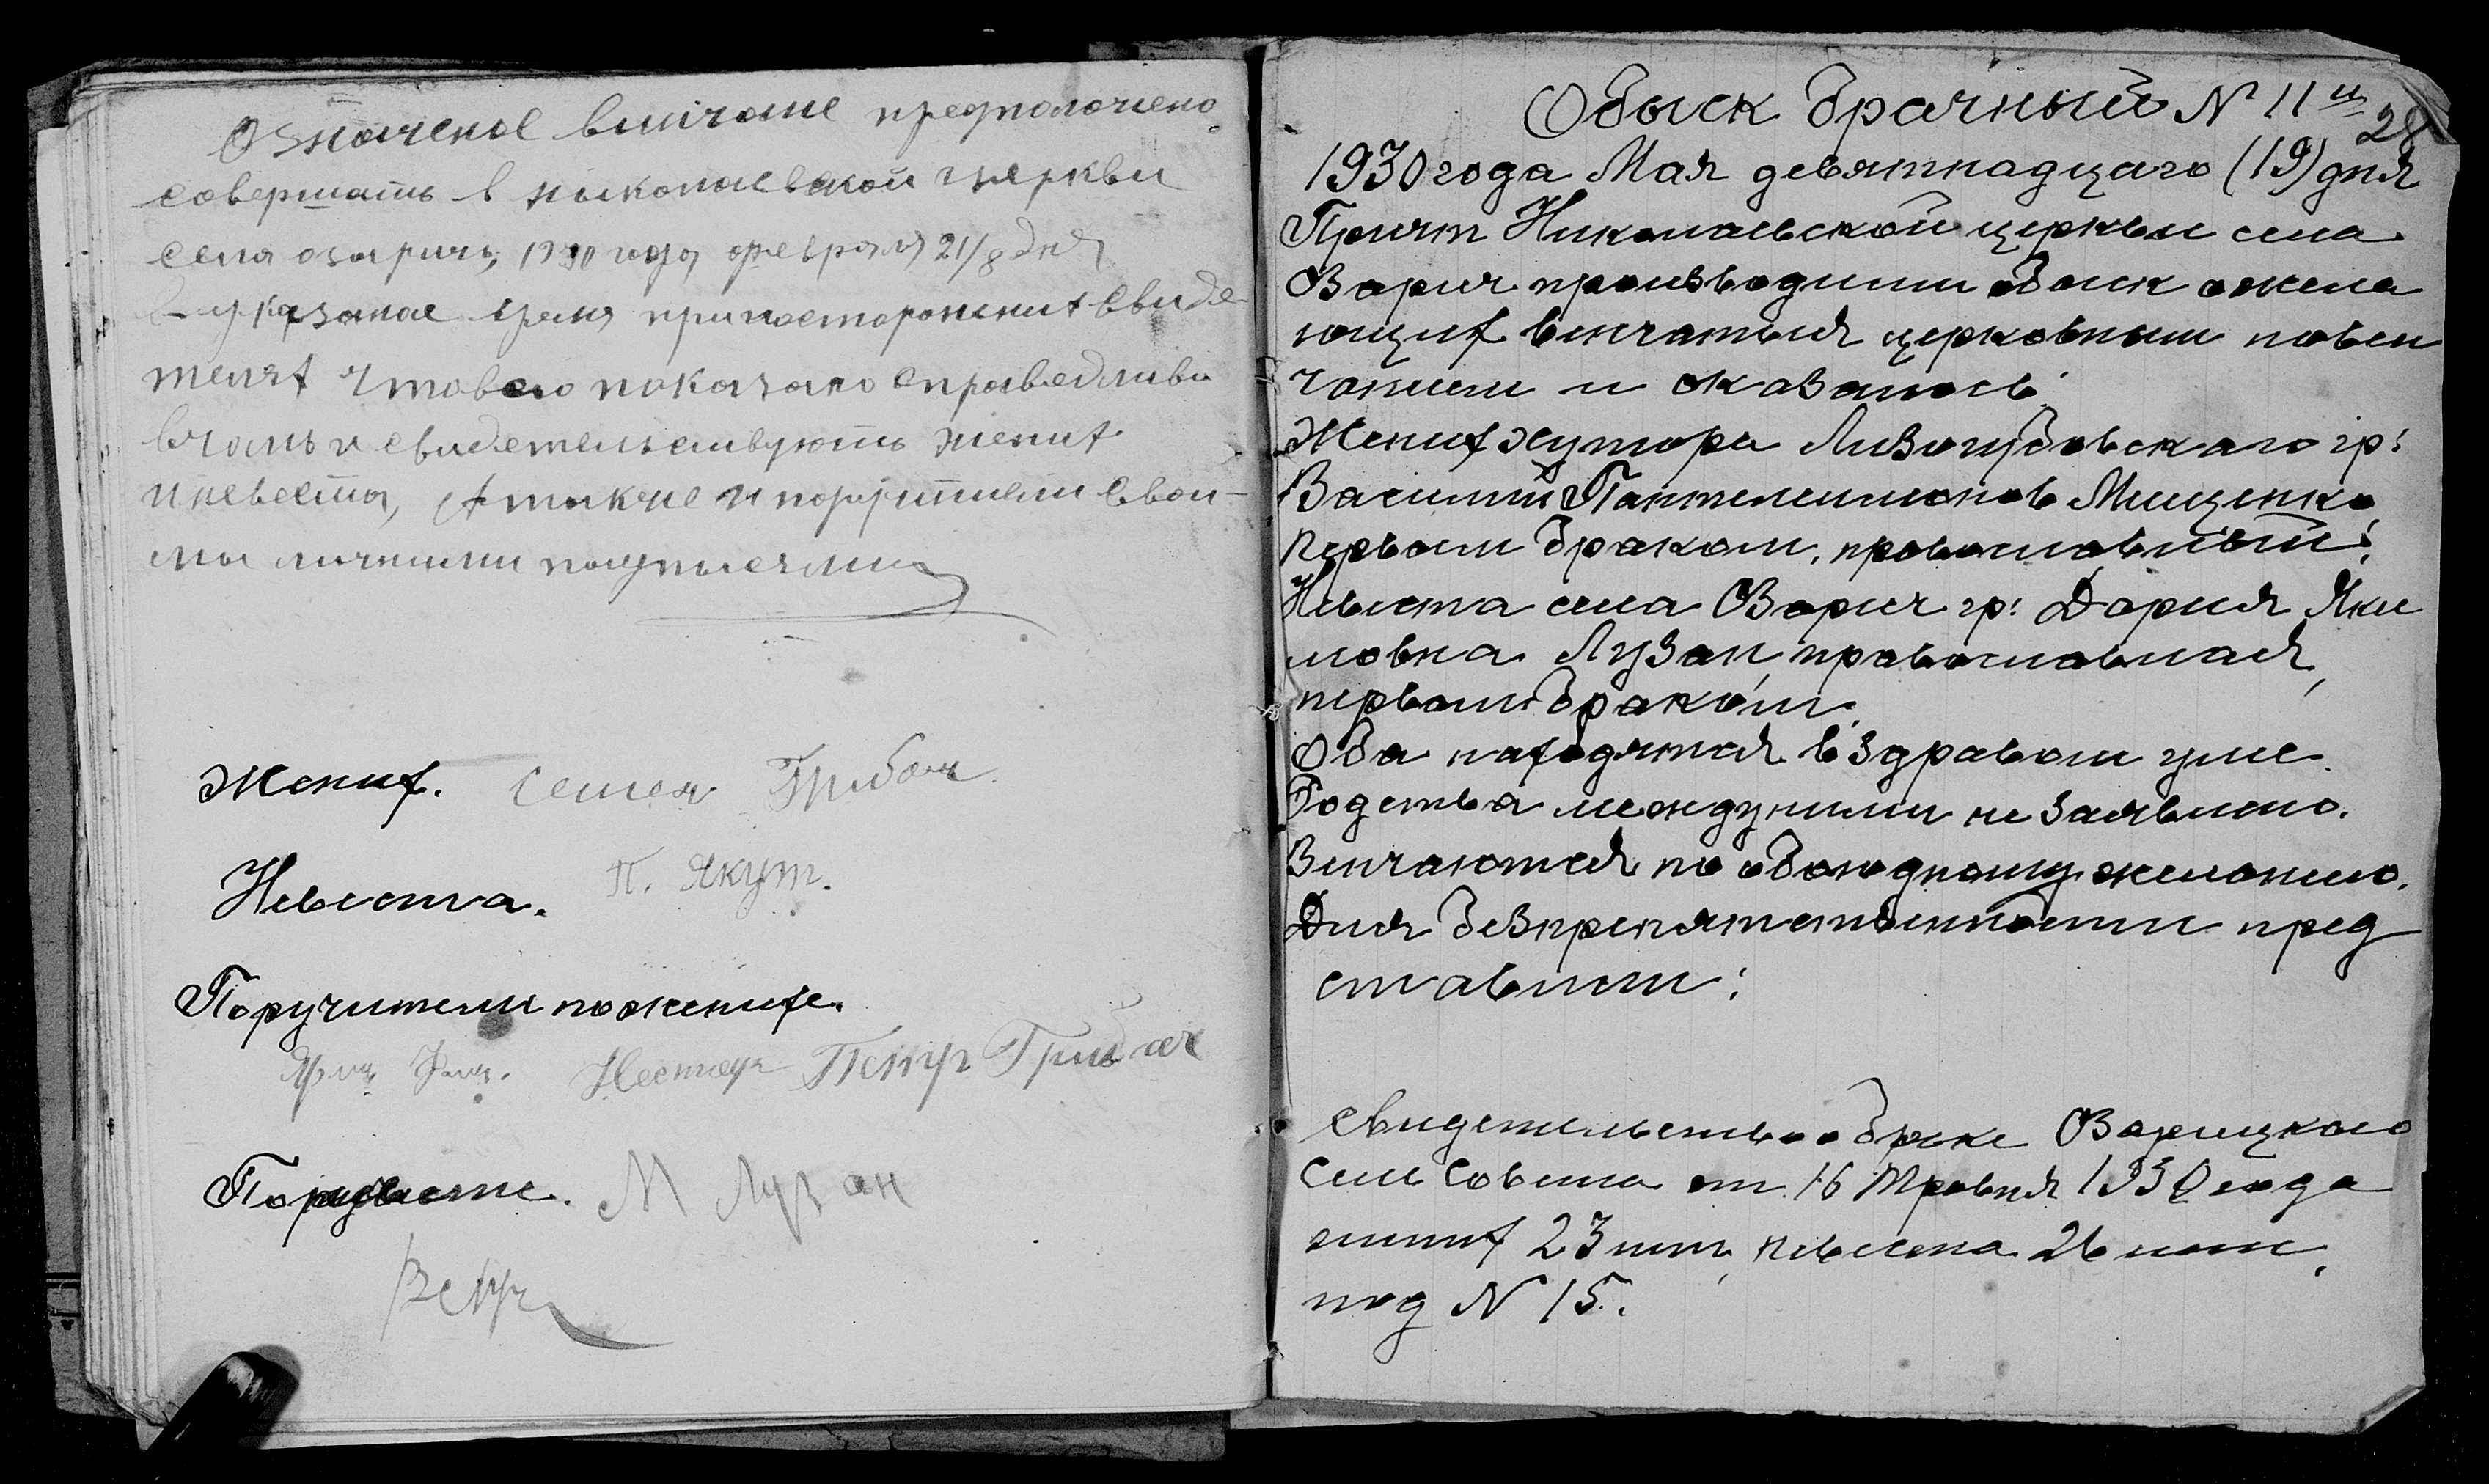 Означеное винчание предположено
совершать в николаевской церкви
села озаричь, 1930 года февраля 21/8 дня
В указаное время при посторонених свиде-
телях что все показано справедливо
в чомъ и свидетельствують жених
и невеста, А также и поручители свои-
ми личними подписями
Жених. Семен Грибач
Невеста. П. Якут.
Поручители по женихе.
Нестор Петр Грибач
По невесте. М Лузан
Обыск брачный № 11й
28
1930 года Мая девятнадцаго (19) дня
Причт Николаевской церкви села
Озарич производили обыск о жела
ющих винчаться церковным повен
чанием и оказалось:
Жених хутора Лизогубовскаго гр:
Василий Пантелеимонов Мищенко
первым браком, православный;
Невеста села Озарич гр: Дария Яки
мовна Лузан, православная,
первым браком.
Оба находятся в здравом уме.
Родства между ними не заявлено.
Винчаются по обоюдному желанию.
Для безпрепятственности пред
ставили:
Свидетельство о браке Озарицкого
Сель Совета от 16 Травня 1930 года
жених 23 лет, невеста 26 лет,
под № 15.